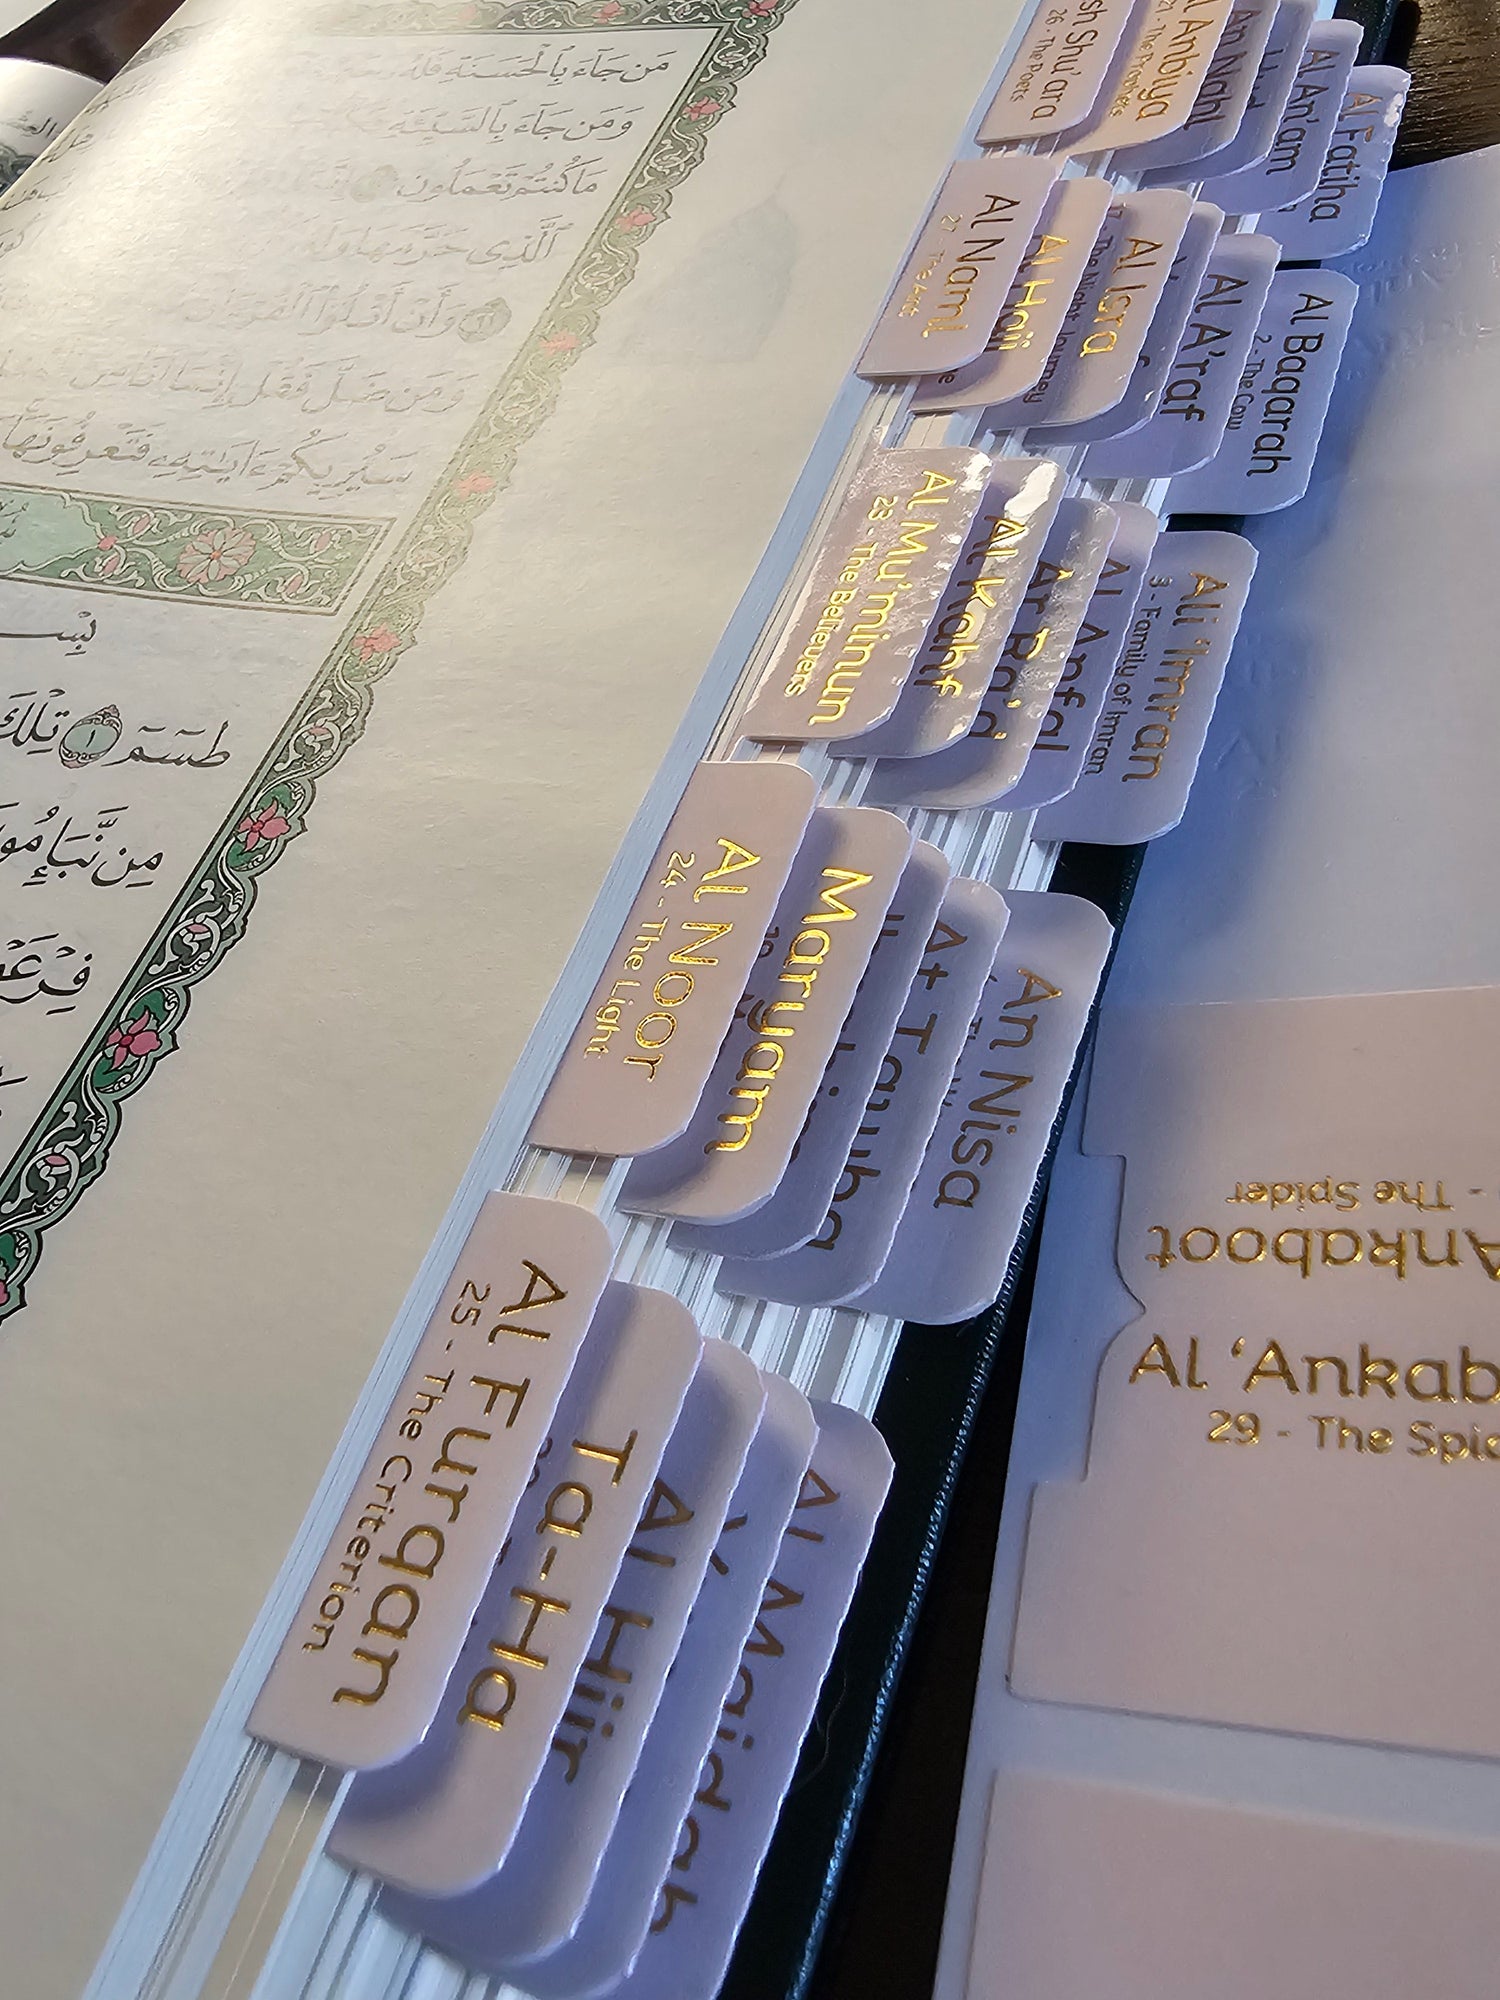 مَن جَآءَ بِٱلْحَسَنَةِ فَلَهُۥ
وَمَن جَآءَ بِٱلسَّيِّئَةِ
مَا كُنتُمْ تَعْمَلُونَ
ٱلَّذِى حَرَّمَهَا وَلَهُۥ
وَأَنْ أَتْلُوَا۟ ٱلْقُرْءَانَ
وَمَن ضَلَّ فَقُلْ إِنَّمَآ أَنَا۠ مِنَ
سَيُرِيكُمْ ءَايَٰتِهِۦ فَتَعْرِفُونَهَا
بِسْ
طسٓمٓ ١ تِلْكَ
مِن نَّبَإِ مُو
فِرْعَ
Ash Shu'ara
26 - The Poets
Al Anbiya
21 - The Prophets
An Nahl
Al An'am
Al Fatiha
Al Naml
27 - The Ant
Al Hajj
Al Isra
17 - The Night Journey
Al A'raf
Al Baqarah
2 - The Cow
Al Mu'minun
23 - The Believers
Al Kahf
Ar Ra'd
Al Anfal
Ali 'Imran
3 - Family of Imran
Al Noor
24 - The Light
Maryam
At Tauba
An Nisa
Al Furqan
25 - The Criterion
Ta-Ha
Al Hijr
Al Maidah
- The Spider
Ankaboot
Al 'Ankab
29 - The Spid